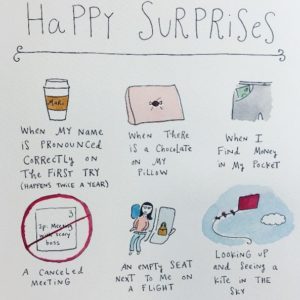 HAPPY SURPRISES
Mari
WHEN MY NAME
IS PRONOUNCED
CORRECTLY ON
THE FIRST TRY
(HAPPENS TWICE A YEAR)
WHEN THERE
IS A CHOCOLATE
ON MY
PILLOW
WHEN I
FIND MONEY
IN MY POCKET
2p. Meeting
with scary
boss
A CANCELED
MEETING
AN EMPTY SEAT
NEXT TO ME ON
A FLIGHT
LOOKING UP
AND SEEING A
KITE IN THE
SKY